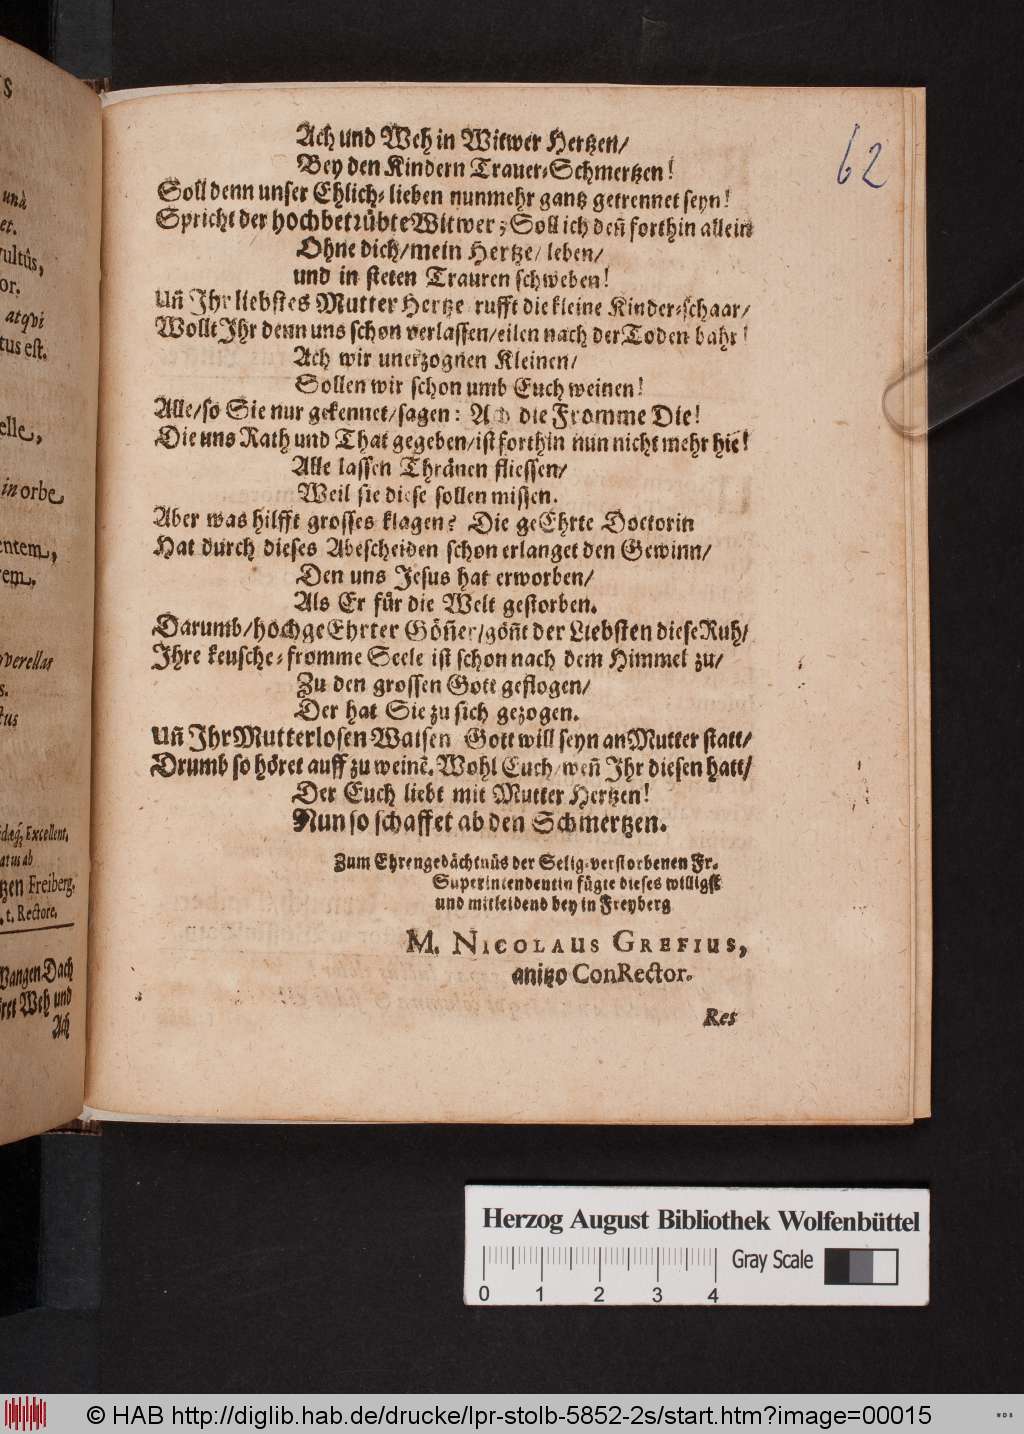 62
Ach und Weh in Witwer Hertzen/
Bey den Kindern Trauer-Schmertzen!
Soll denn unser Ehlich-lieben nunmehr gantz getrennet seyn!
Spricht der hochbetrübte Witwer; Soll ich deñ forthin allein
Ohne dich/mein Hertze/leben/
und in steten Trauren schweben!
Uñ Ihr liebstes Mutter Hertze rufft die kleine Kinder-schaar/
Wollt Ihr denn uns schon verlassen/eilen nach der Toden bahr!
Ach wir unerzognen Kleinen/
Sollen wir schon umb Euch weinen!
Alle/so Sie nur gekennet/sagen: Ach die Fromme Die!
Die uns Rath und That gegeben/ist forthin nun nicht mehr hie!
Alle lassen Thränen fliessen/
Weil sie diese sollen missen.
Aber was hilfft grosses klagen? Die geEhrte Doctorin
Hat durch dieses Abescheiden schon erlanget den Gewinn/
Den uns Jesus hat erworben/
Als Er für die Welt gestorben.
Darumb/hochgeEhrter Göñer/göñt der Liebsten diese Ruh/
Ihre keusche-fromme Seele ist schon nach dem Himmel zu/
Zu den grossen Gott geflogen/
Der hat Sie zu sich gezogen.
Uñ Ihr Mutterlosen Waisen Gott will seyn an Mutter statt/
Drumb so höret auff zu weinē. Wohl Euch/weñ Ihr diesen hatt/
Der Euch liebt mit Mutter Hertzen!
Nun so schaffet ab den Schmertzen.
Zum Ehrengedächtnüs der Selig-verstorbenen Fr.
Superintendentin fügte dieses willigst
und mitleidend bey in Freyberg
M. NICOLAUS GREFIUS,
anitzo ConRector.
Res
und
et.
vultûs,
or.
atqvi
tus est.
elle,
in orbe
entem,
rem,
qverellas
s.
tus
Excellent.
atus ab
tzen Freiberg.
. t. Rectore.
Wangen Dach
ret Weh und
Ach
Herzog August Bibliothek Wolfenbüttel
Gray Scale
0 1 2 3 4
© HAB http://diglib.hab.de/drucke/lpr-stolb-5852-2s/start.htm?image=00015